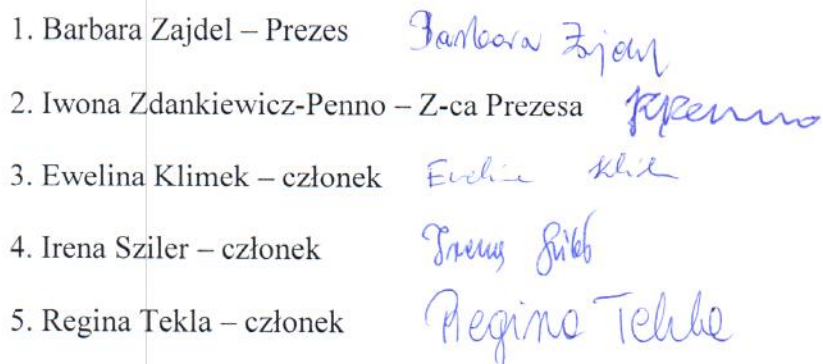 1. Barbara Zajdel – Prezes Barbara Zajdel
2. Iwona Zdankiewicz-Penno – Z-ca Prezesa
3. Ewelina Klimek – członek Ewelina
4. Irena Sziler – członek Irena
5. Regina Tekla – członek Regina Tekla